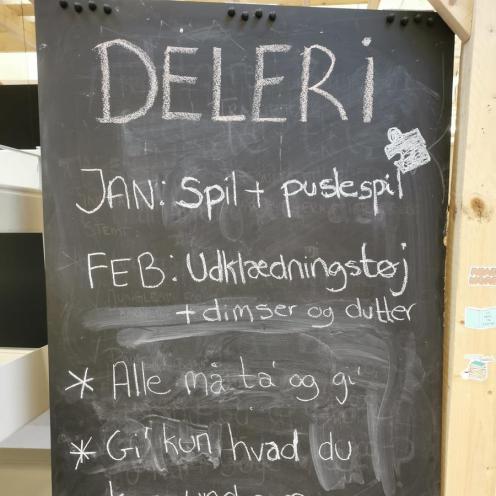 DELERi
JAN: Spil + puslespil
FEB: Udklædningstøj
+ dimser og dutter
* Alle må ta' og gi'
* Gi' kun hvad du